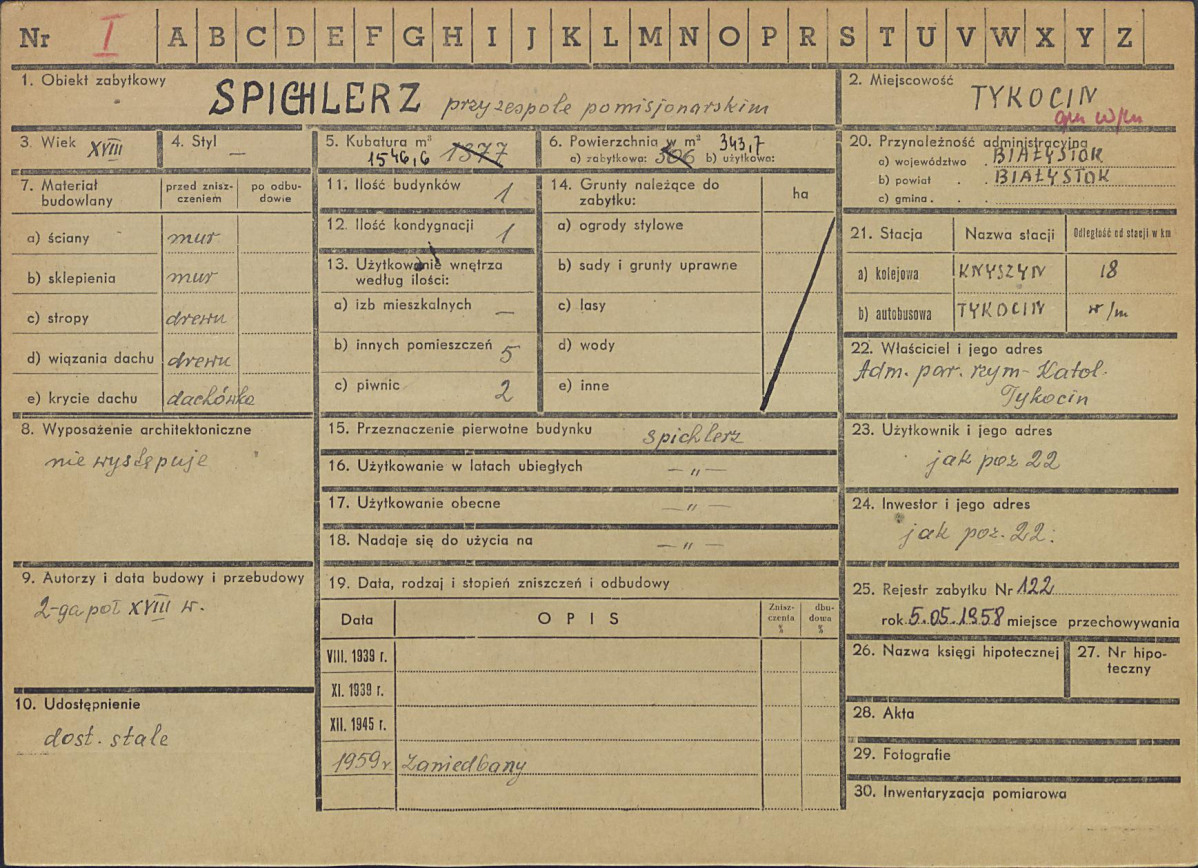 Nr I A B C D E F G H I J K L M N O P R S T U V W X Y Z
1. Obiekt zabytkowy
SPICHLERZ przy zespole pomisjonarskim
2. Miejscowość
TYKOCIN
3. Wiek XVIII
4. Styl —
5. Kubatura m³
1546,6 1377
6. Powierzchnia w m² 343,7
a) zabytkowa: 306 b) użytkowa:
20. Przynależność administracyjna
a) województwo . BIAŁYSTOK
b) powiat . . BIAŁYSTOK
c) gmina . . .
7. Materiał budowlany
przed znisz-
czeniem
po odbu-
dowie
a) ściany mur
b) sklepienia mur
c) stropy drewn
d) wiązania dachu drewn
e) krycie dachu dachówka
11. Ilość budynków 1
12. Ilość kondygnacji 1
13. Użytkowanie wnętrza
według ilości:
a) izb mieszkalnych —
b) innych pomieszczeń 5
c) piwnic 2
14. Grunty należące do
zabytku:
ha
a) ogrody stylowe
b) sady i grunty uprawne
c) lasy
d) wody
e) inne
21. Stacja Nazwa stacji Odległość od stacji w km
a) kolejowa KNYSZYN 18
b) autobusowa TYKOCIN w/m
22. Właściciel i jego adres
Adm. par. rzym-Katol.
Tykocin
8. Wyposażenie architektoniczne
nie występuje
15. Przeznaczenie pierwotne budynku spichlerz
16. Użytkowanie w latach ubiegłych — „ —
17. Użytkowanie obecne — „ —
18. Nadaje się do użycia na — „ —
23. Użytkownik i jego adres
jak poz 22
24. Inwestor i jego adres
jak poz. 22.
9. Autorzy i data budowy i przebudowy
2-ga poł XVIII w.
19. Data, rodzaj i stopień zniszczeń i odbudowy
Data OPIS
Znisz-
czenia
%
dbu-
dowa
%
VIII. 1939 r.
XI. 1939 r.
XII. 1945 r.
1959 r. Zaniedbany
25. Rejestr zabytku Nr 122
rok 5.05.1958 miejsce przechowywania
26. Nazwa księgi hipotecznej
27. Nr hipo-
teczny
10. Udostępnienie
dost. stale
28. Akta
29. Fotografie
30. Inwentaryzacja pomiarowa